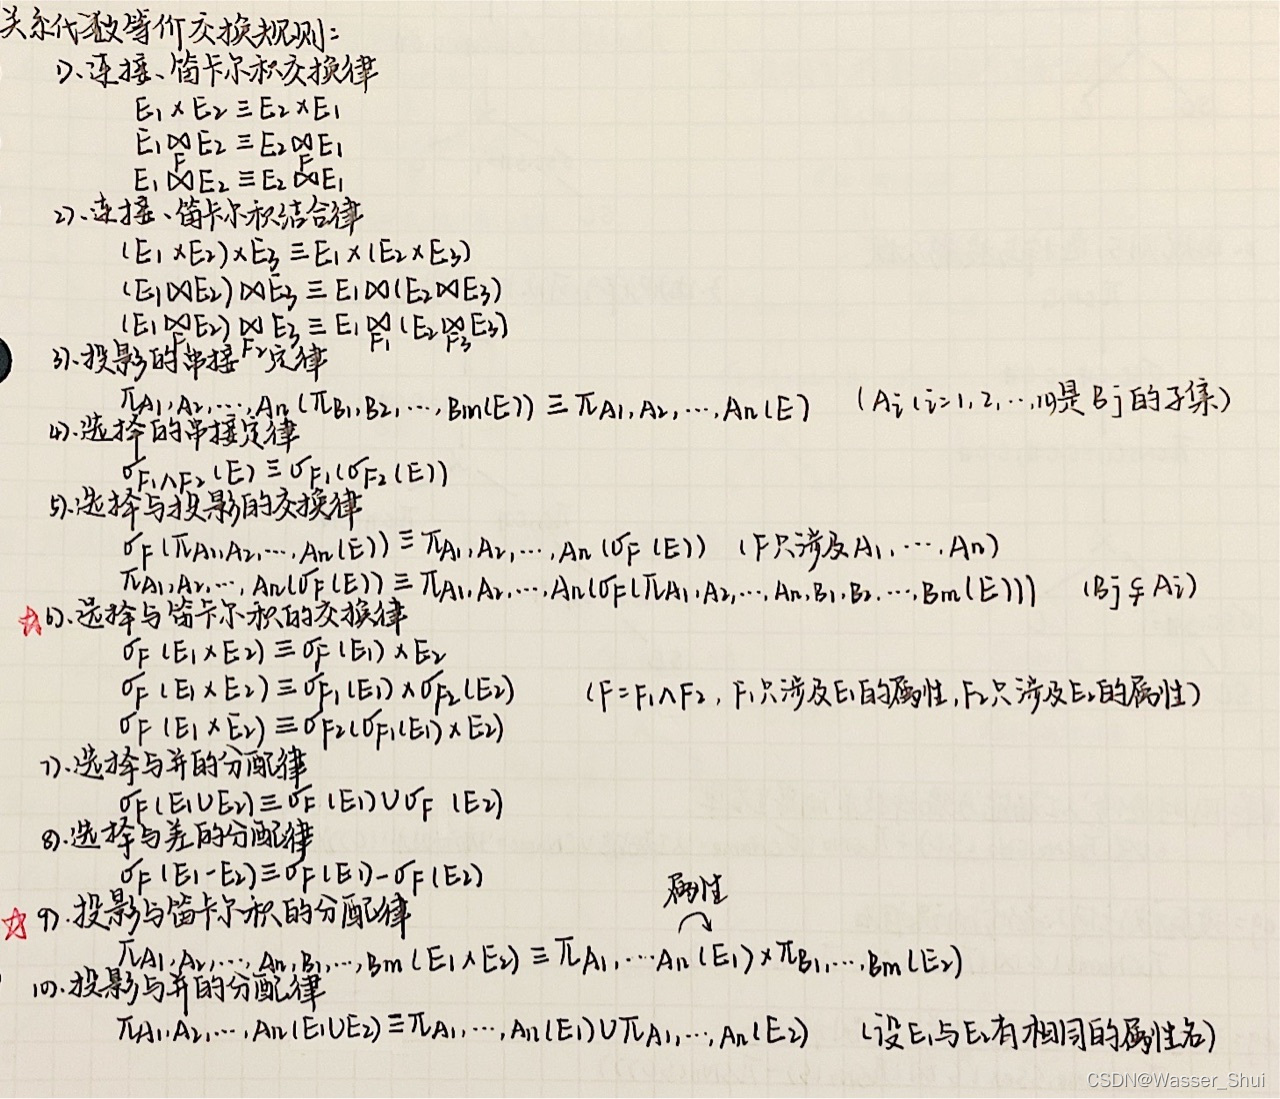 关系代数等价交换规则:
1)、连接、笛卡尔积交换律
E₁ × E₂ ≡ E₂ × E₁
E₁ ⋈ E₂ ≡ E₂ ⋈ E₁
E₁ ⋈_F E₂ ≡ E₂ ⋈_F E₁
2)、连接、笛卡尔积结合律
(E₁ × E₂) × E₃ ≡ E₁ × (E₂ × E₃)
(E₁ ⋈ E₂) ⋈ E₃ ≡ E₁ ⋈ (E₂ ⋈ E₃)
(E₁ ⋈_F₁ E₂) ⋈_F₂ E₃ ≡ E₁ ⋈_F₁ (E₂ ⋈_F₃ E₃)
3)、投影的串接定律
π_A₁,A₂,…,An(π_B₁,B₂,…,Bm(E)) ≡ π_A₁,A₂,…,An(E) (Ai(i=1,2,…,n)是Bj的子集)
4)、选择的串接定律
σ_F₁∧F₂(E) ≡ σ_F₁(σ_F₂(E))
5)、选择与投影的交换律
σ_F(π_A₁,A₂,…,An(E)) ≡ π_A₁,A₂,…,An(σ_F(E)) (F只涉及A₁,…,An)
π_A₁,A₂,…,An(σ_F(E)) ≡ π_A₁,A₂,…,An(σ_F(π_A₁,A₂,…,An,B₁,B₂,…,Bm(E))) (Bj⊊Ai)
☆6)、选择与笛卡尔积的交换律
σ_F(E₁×E₂) ≡ σ_F(E₁)×E₂
σ_F(E₁×E₂) ≡ σ_F₁(E₁)×σ_F₂(E₂) (F=F₁∧F₂, F₁只涉及E₁的属性,F₂只涉及E₂的属性)
σ_F(E₁×E₂) ≡ σ_F₂(σ_F₁(E₁)×E₂)
7)、选择与并的分配律
σ_F(E₁∪E₂) ≡ σ_F(E₁)∪σ_F(E₂)
8)、选择与差的分配律
σ_F(E₁-E₂) ≡ σ_F(E₁)-σ_F(E₂)
属性
☆9)、投影与笛卡尔积的分配律
π_A₁,A₂,…,An,B₁,…,Bm(E₁×E₂) ≡ π_A₁,…An(E₁)×π_B₁,…,Bm(E₂)
10)、投影与并的分配律
π_A₁,A₂,…,An(E₁∪E₂) ≡ π_A₁,…,An(E₁)∪π_A₁,…,An(E₂) (设E₁与E₂有相同的属性名)
CSDN@Wasser_Shui